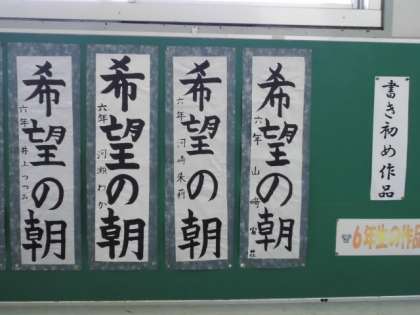 書き初め作品
6年生の作品
希望の朝
六年 山崎
希望の朝
六年 河崎朱莉
希望の朝
六年 河瀬わか
希望の朝
六年 井上つつみ